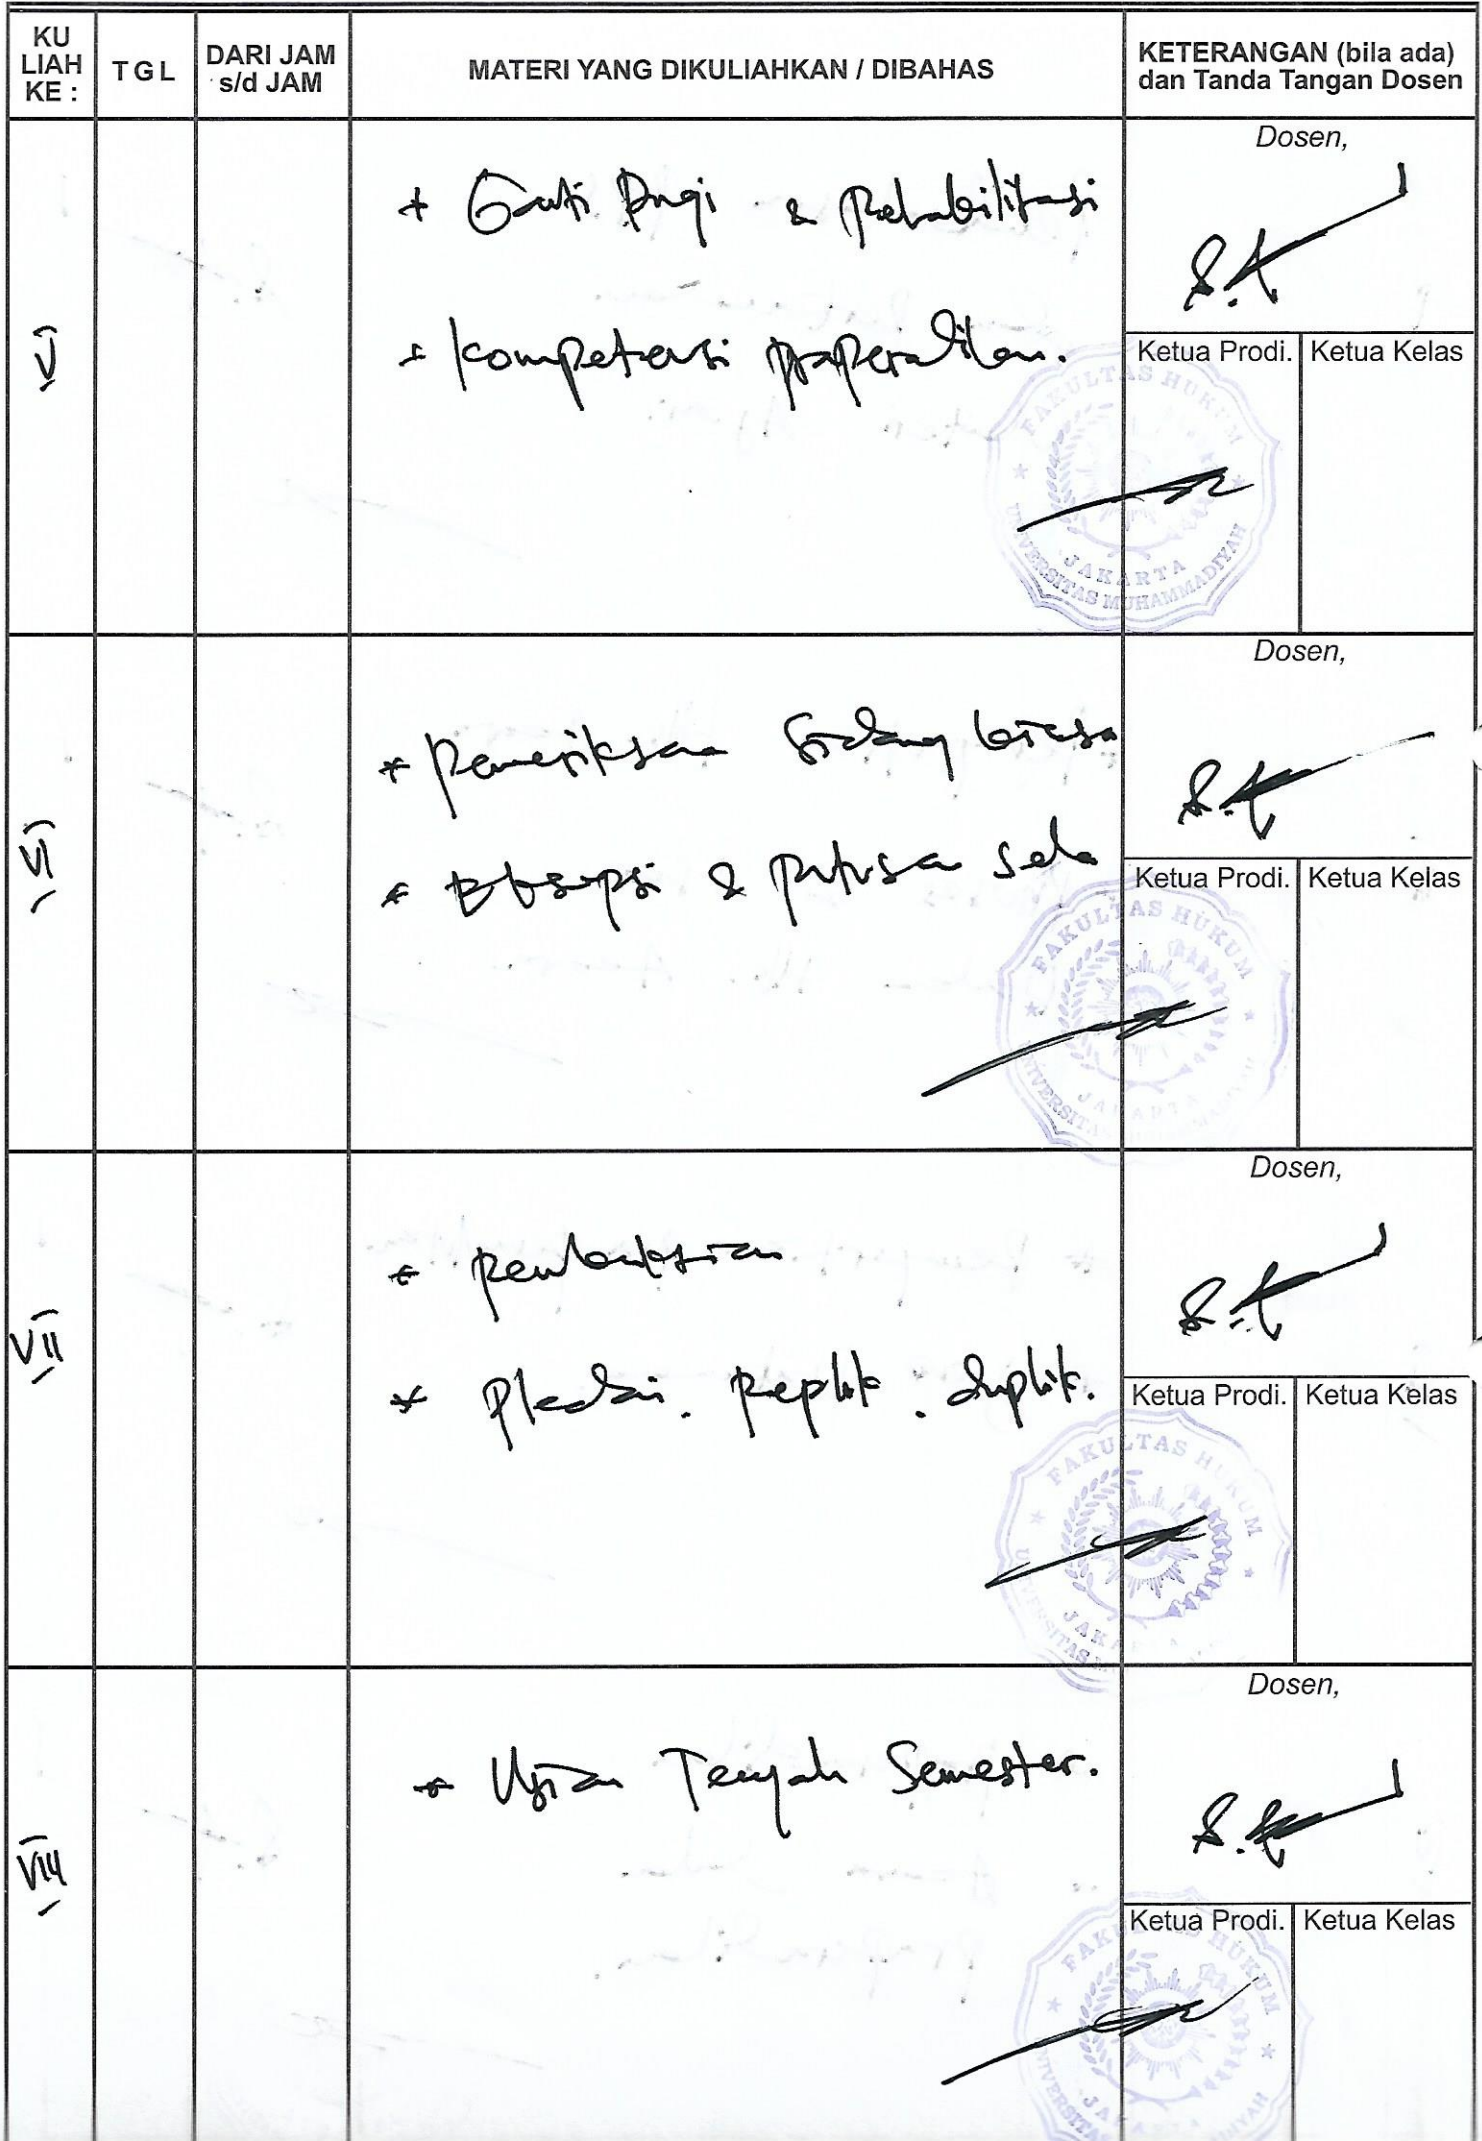 KU
LIAH
KE :
TGL
DARI JAM
s/d JAM
MATERI YANG DIKULIAHKAN / DIBAHAS
KETERANGAN (bila ada)
dan Tanda Tangan Dosen
V
+ Ganti Rugi & Rehabilitasi
+ Kompetensi praperadilan.
Dosen,
Ketua Prodi. Ketua Kelas
FAKULTAS HUKUM
UNIVERSITAS MUHAMMADIYAH
JAKARTA
VI
* Pemeriksaan Sidang biasa
* Eksepsi & putusan sela
Dosen,
Ketua Prodi. Ketua Kelas
FAKULTAS HUKUM
JAKARTA
VII
* Pembuktian
* Pledoi. Replik. duplik.
Dosen,
Ketua Prodi. Ketua Kelas
FAKULTAS HUKUM
VIII
* Ujian Tengah Semester.
Dosen,
Ketua Prodi. Ketua Kelas
FAKULTAS HUKUM